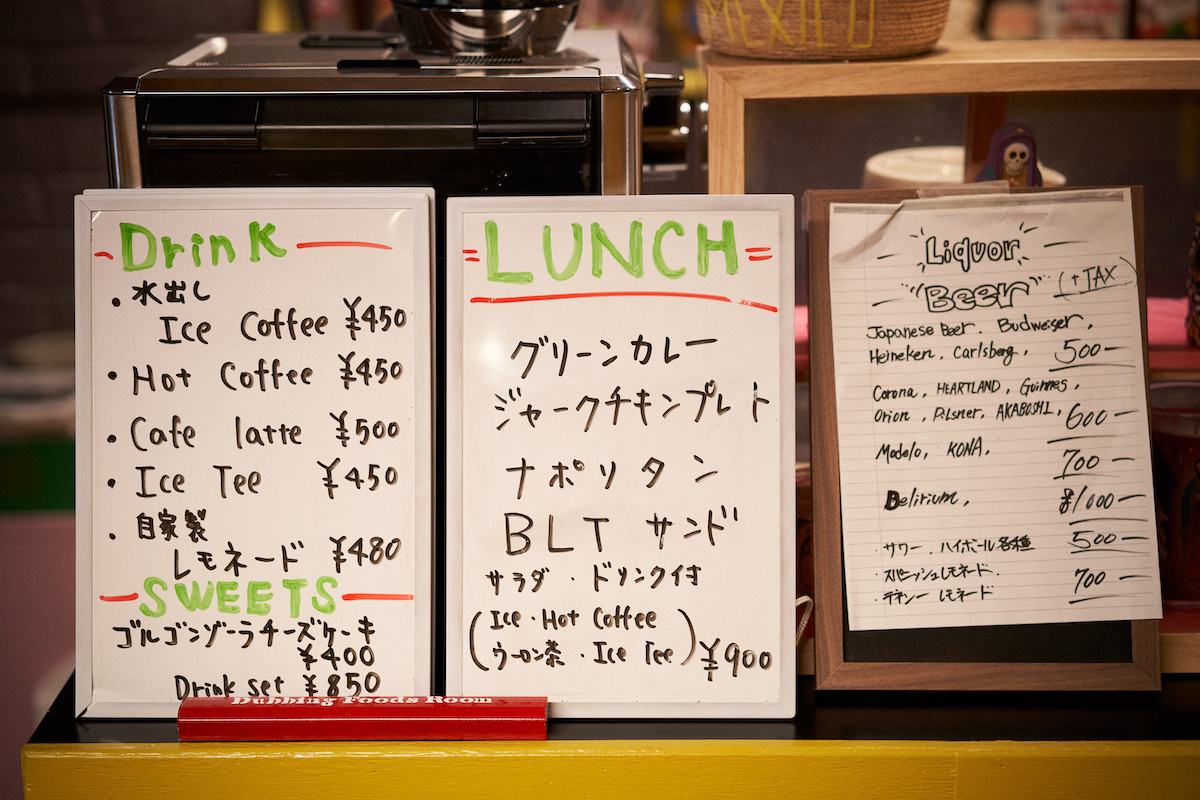 MEXICO
Drink
・水出し
Ice Coffee ¥450
・Hot Coffee ¥450
・Cafe latte ¥500
・Ice Tee ¥450
・自家製
レモネード ¥480
SWEETS
ゴルゴンゾーラチーズケーキ
¥400
Drink set ¥850
=LUNCH=
グリーンカレー
ジャークチキンプレト
ナポリタン
BLT サンド
サラダ・ドリンク付
(Ice・Hot Coffee
ウーロン茶・Ice Tee) ¥900
Liquor
Beer (+TAX)
Japanese Beer. Budweiser,
Heineken, Carlsberg, 500-
Corona, HEARTLAND, Guinnes,
Orion, Pilsner, AKABOSHI, 600-
Modelo, KONA, 700-
Delirium, ¥1000-
・サワー、ハイボール各種 500-
・スパニッシュレモネード.
・テネシー レモネード 700-
Dubbing Foods Room